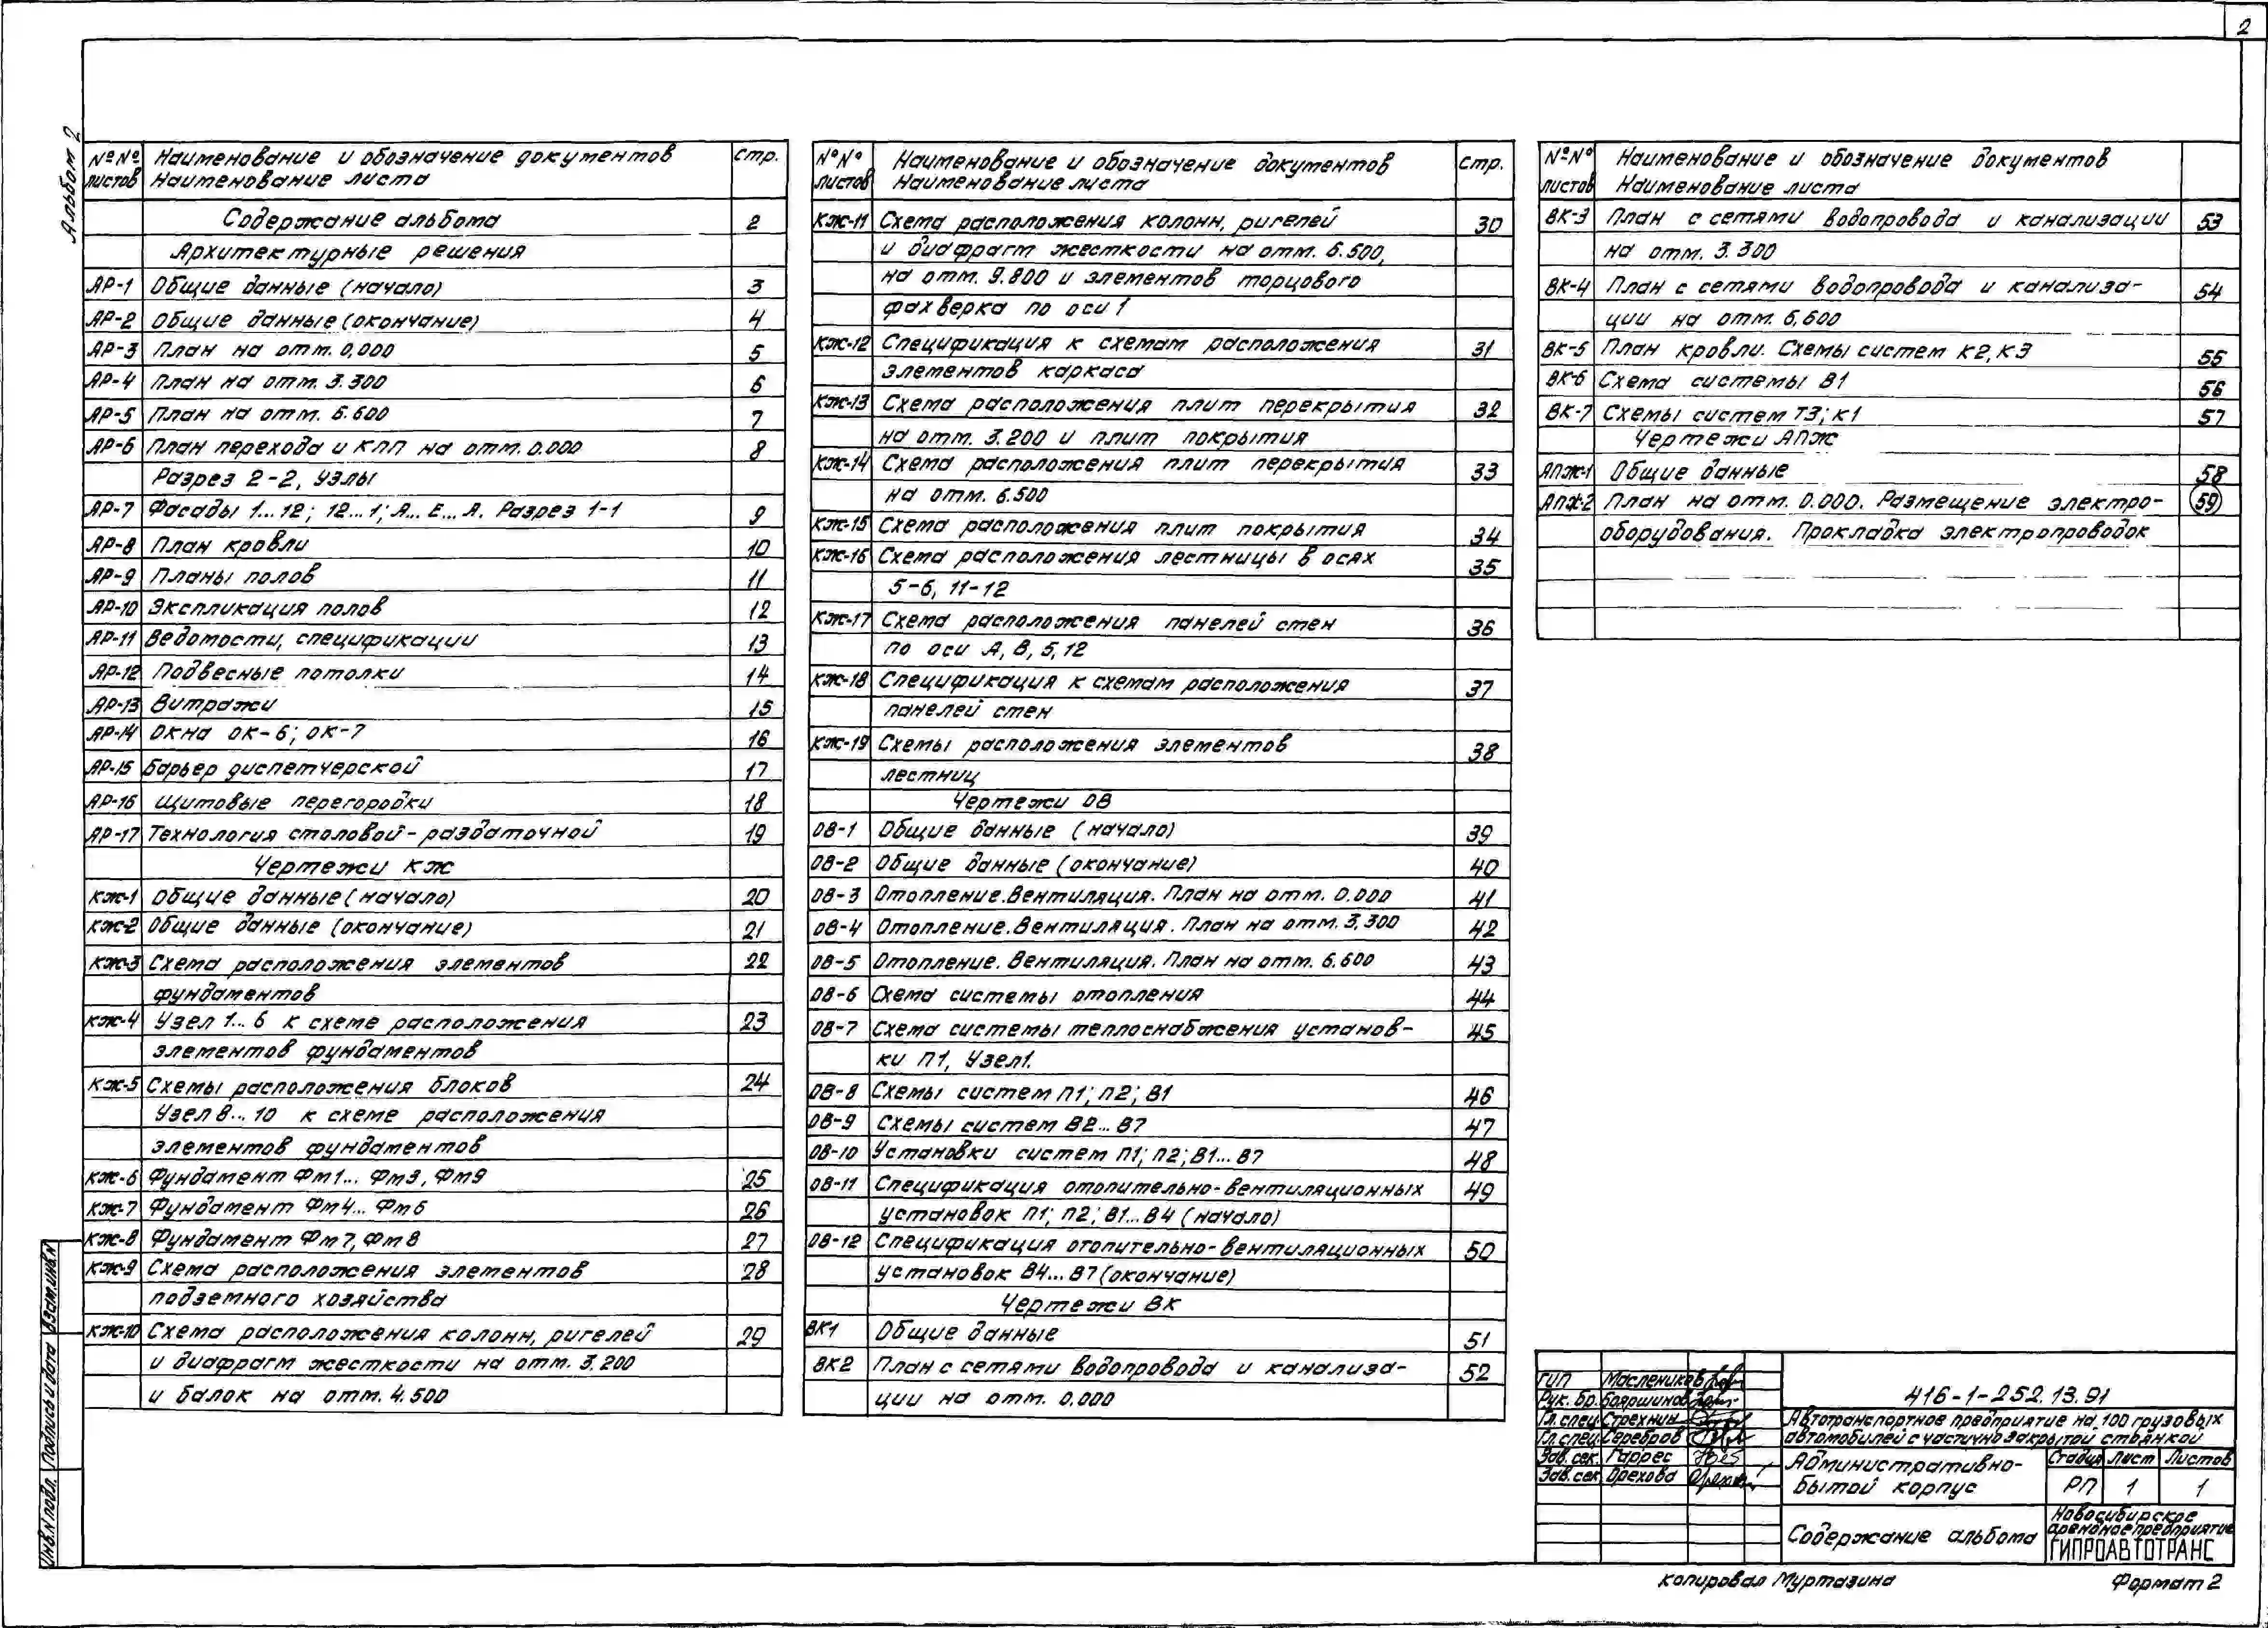 2
Альбом 2
№№ листов Наименование и обозначение документов Наименование листа стр.
Содержание альбома 2
Архитектурные решения
АР-1 Общие данные (начало) 3
АР-2 Общие данные (окончание) 4
АР-3 План на отм. 0,000 5
АР-4 План на отм. 3.300 6
АР-5 План на отм. 6.600 7
АР-6 План перехода и КПП на отм. 0.000 8
Разрез 2-2, узлы
АР-7 Фасады 1...12; 12...1; А... Е... А. Разрез 1-1 9
АР-8 План кровли 10
АР-9 Планы полов 11
АР-10 Экспликация полов 12
АР-11 Ведомости, спецификации 13
АР-12 Подвесные потолки 14
АР-13 Витражи 15
АР-14 Окна ОК-6; ОК-7 16
АР-15 Барьер диспетчерской 17
АР-16 Щитовые перегородки 18
АР-17 Технология столовой-раздаточной 19
Чертежи КЖ
КЖ-1 Общие данные (начало) 20
КЖ-2 Общие данные (окончание) 21
КЖ-3 Схема расположения элементов 22
фундаментов
КЖ-4 Узел 1... 6 к схеме расположения 23
элементов фундаментов
КЖ-5 Схемы расположения блоков 24
Узел 8... 10 к схеме расположения
элементов фундаментов
КЖ-6 Фундамент Фм1... Фм3, Фм9 25
КЖ-7 Фундамент Фм4... Фм6 26
КЖ-8 Фундамент Фм7, Фм8 27
КЖ-9 Схема расположения элементов 28
подземного хозяйства
КЖ-10 Схема расположения колонн, ригелей 29
и диафрагм жесткости на отм. 3.200
и балок на отм. 4.500
№№ листов Наименование и обозначение документов Наименование листа стр.
КЖ-11 Схема расположения колонн, ригелей 30
и диафрагм жесткости на отм. 6.500,
на отм. 9.800 и элементов торцового
фахверка по оси 1
КЖ-12 Спецификация к схемам расположения 31
элементов каркаса
КЖ-13 Схема расположения плит перекрытия 32
на отм. 3.200 и плит покрытия
КЖ-14 Схема расположения плит перекрытия 33
на отм. 6.500
КЖ-15 Схема расположения плит покрытия 34
КЖ-16 Схема расположения лестницы в осях 35
5-6, 11-12
КЖ-17 Схема расположения панелей стен 36
по оси А, В, 5, 12
КЖ-18 Спецификация к схемам расположения 37
панелей стен
КЖ-19 Схемы расположения элементов 38
лестниц
Чертежи ОВ
ОВ-1 Общие данные (начало) 39
ОВ-2 Общие данные (окончание) 40
ОВ-3 Отопление. Вентиляция. План на отм. 0.000 41
ОВ-4 Отопление. Вентиляция. План на отм. 3.300 42
ОВ-5 Отопление. Вентиляция. План на отм. 6.600 43
ОВ-6 Схема системы отопления 44
ОВ-7 Схема системы теплоснабжения установ- 45
ки П1, Узел1.
ОВ-8 Схемы систем П1; П2; В1 46
ОВ-9 Схемы систем В2... В7 47
ОВ-10 Установки систем П1; П2; В1... В7 48
ОВ-11 Спецификация отопительно-вентиляционных 49
установок П1; П2; В1...В4 (начало)
ОВ-12 Спецификация отопительно-вентиляционных 50
установок В4...В7 (окончание)
Чертежи ВК
ВК1 Общие данные 51
ВК2 План с сетями водопровода и канализа- 52
ции на отм. 0.000
№№ листов Наименование и обозначение документов Наименование листа
ВК-3 План с сетями водопровода и канализации 53
на отм. 3.300
ВК-4 План с сетями водопровода и канализа- 54
ции на отм. 6,600
ВК-5 План кровли. Схемы систем К2, К3 55
ВК-6 Схема системы В1 56
ВК-7 Схемы систем Т3; К1 57
Чертежи АПЖ
АПЖ-1 Общие данные 58
АПЖ-2 План на отм. 0.000. Размещение электро- 59
оборудования. Прокладка электропроводок
Инв.N подл. Подпись и дата Взам.инв.N
ГИП Маслеников
Рук. бр. Бояршинов
Гл.спец. Стрехнин
Гл.спец. Серебров
Зав. сек. Гаррес
Зав. сек. Орехова
416-1-252.13.91
Автотранспортное предприятие на 100 грузовых
автомобилей с частично закрытой стоянкой
Административно-
бытой корпус
Стадия Лист Листов
РП 1 1
Содержание альбома
Новосибирское
арендное предприятие
ГИПРОАВТОТРАНС
копировал Муртазина
Формат 2